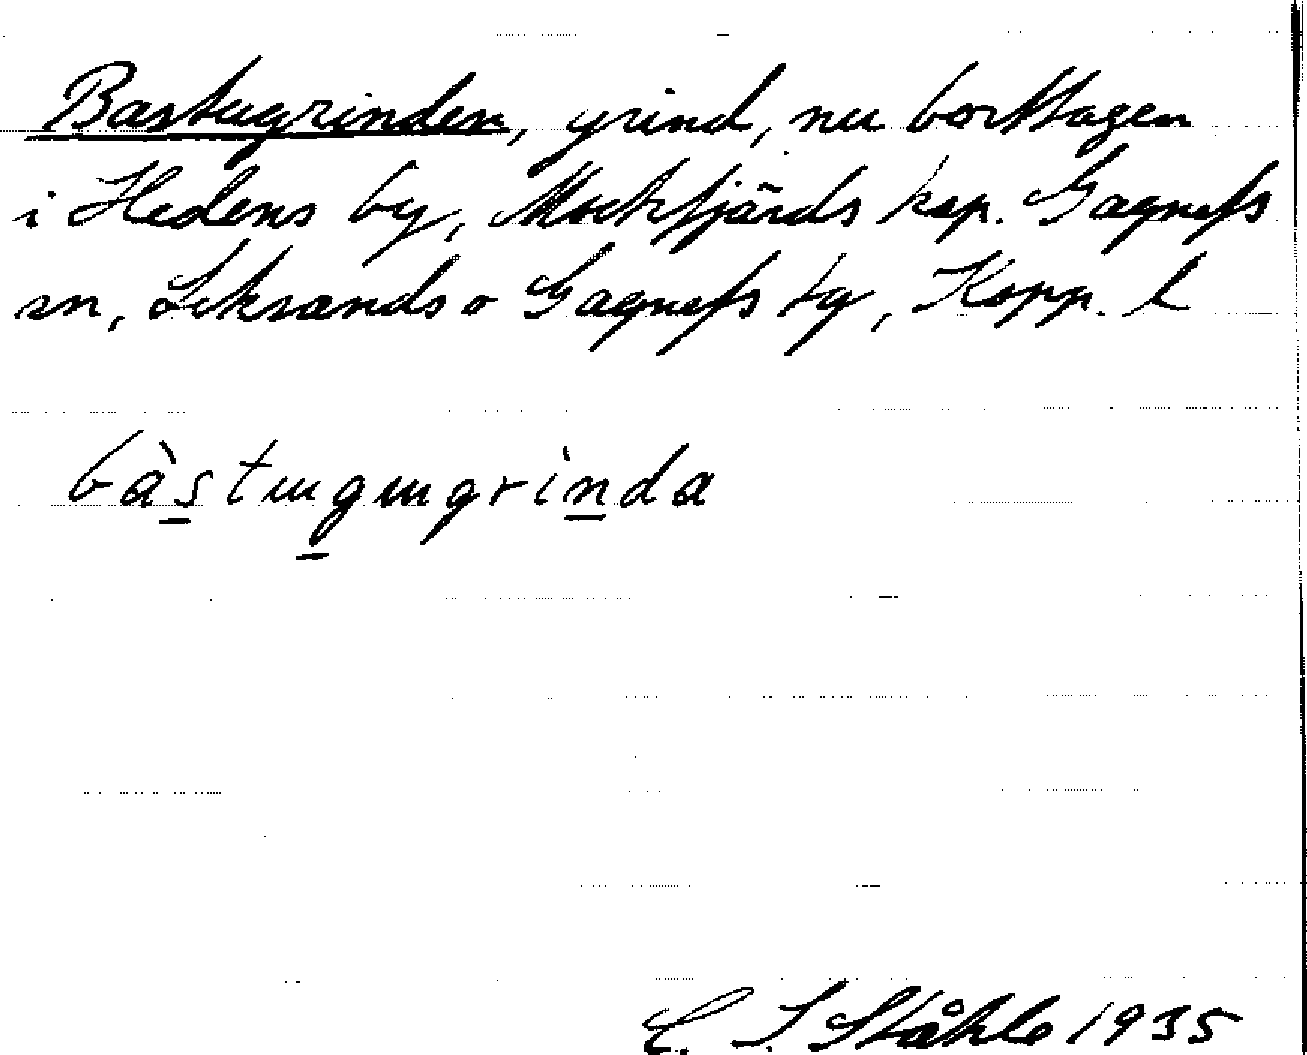 Bastugrinden, grind, nu borttagen
i Hedens by, Mockfjärds kap. Gagnefs
sn, Leksands o Gagnefs tg, Kopp. l
bàstɯgɯgrìnda
C. I. Ståhle 1935